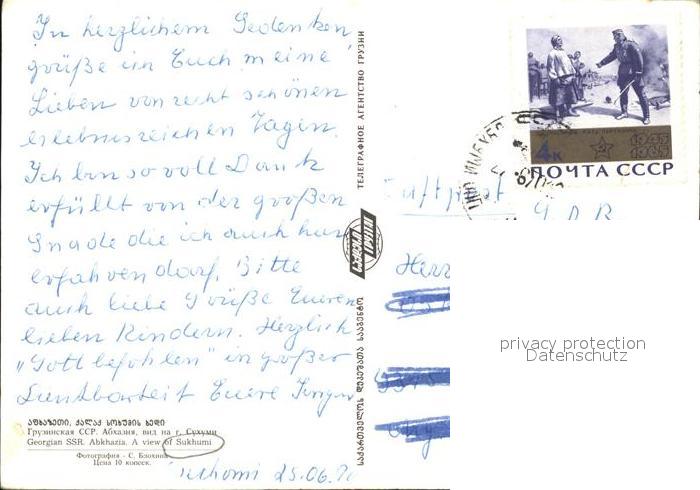 In herzlichem Gedenken
grüße ich Euch meine
Lieben von recht schönen
erlebnisreichen Tagen.
Ich bin so voll Dank
erfüllt von der großen
Gnade die ich auch hier
erfahren darf. Bitte
auch liebe Grüße Eueren
lieben Kindern. Herzlich
"Gott befohlen" in großer
Dankbarkeit Euere
აფხაზეთი, ქალაქ სოხუმის ხედი
Грузинская ССР. Абхазия, вид на г. Сухуми
Georgian SSR. Abkhazia. A view of Sukhumi
Фотография - С. Блохина
Цена 10 копеек.
25.06.
ТЕЛЕГРАФНОЕ АГЕНТСТВО ГРУЗИИ
საქართველოს დეპეშათა სააგენტო
4к
1945
1965
ПОЧТА СССР
Luftpost
GDR
Herr
privacy protection
Datenschutz